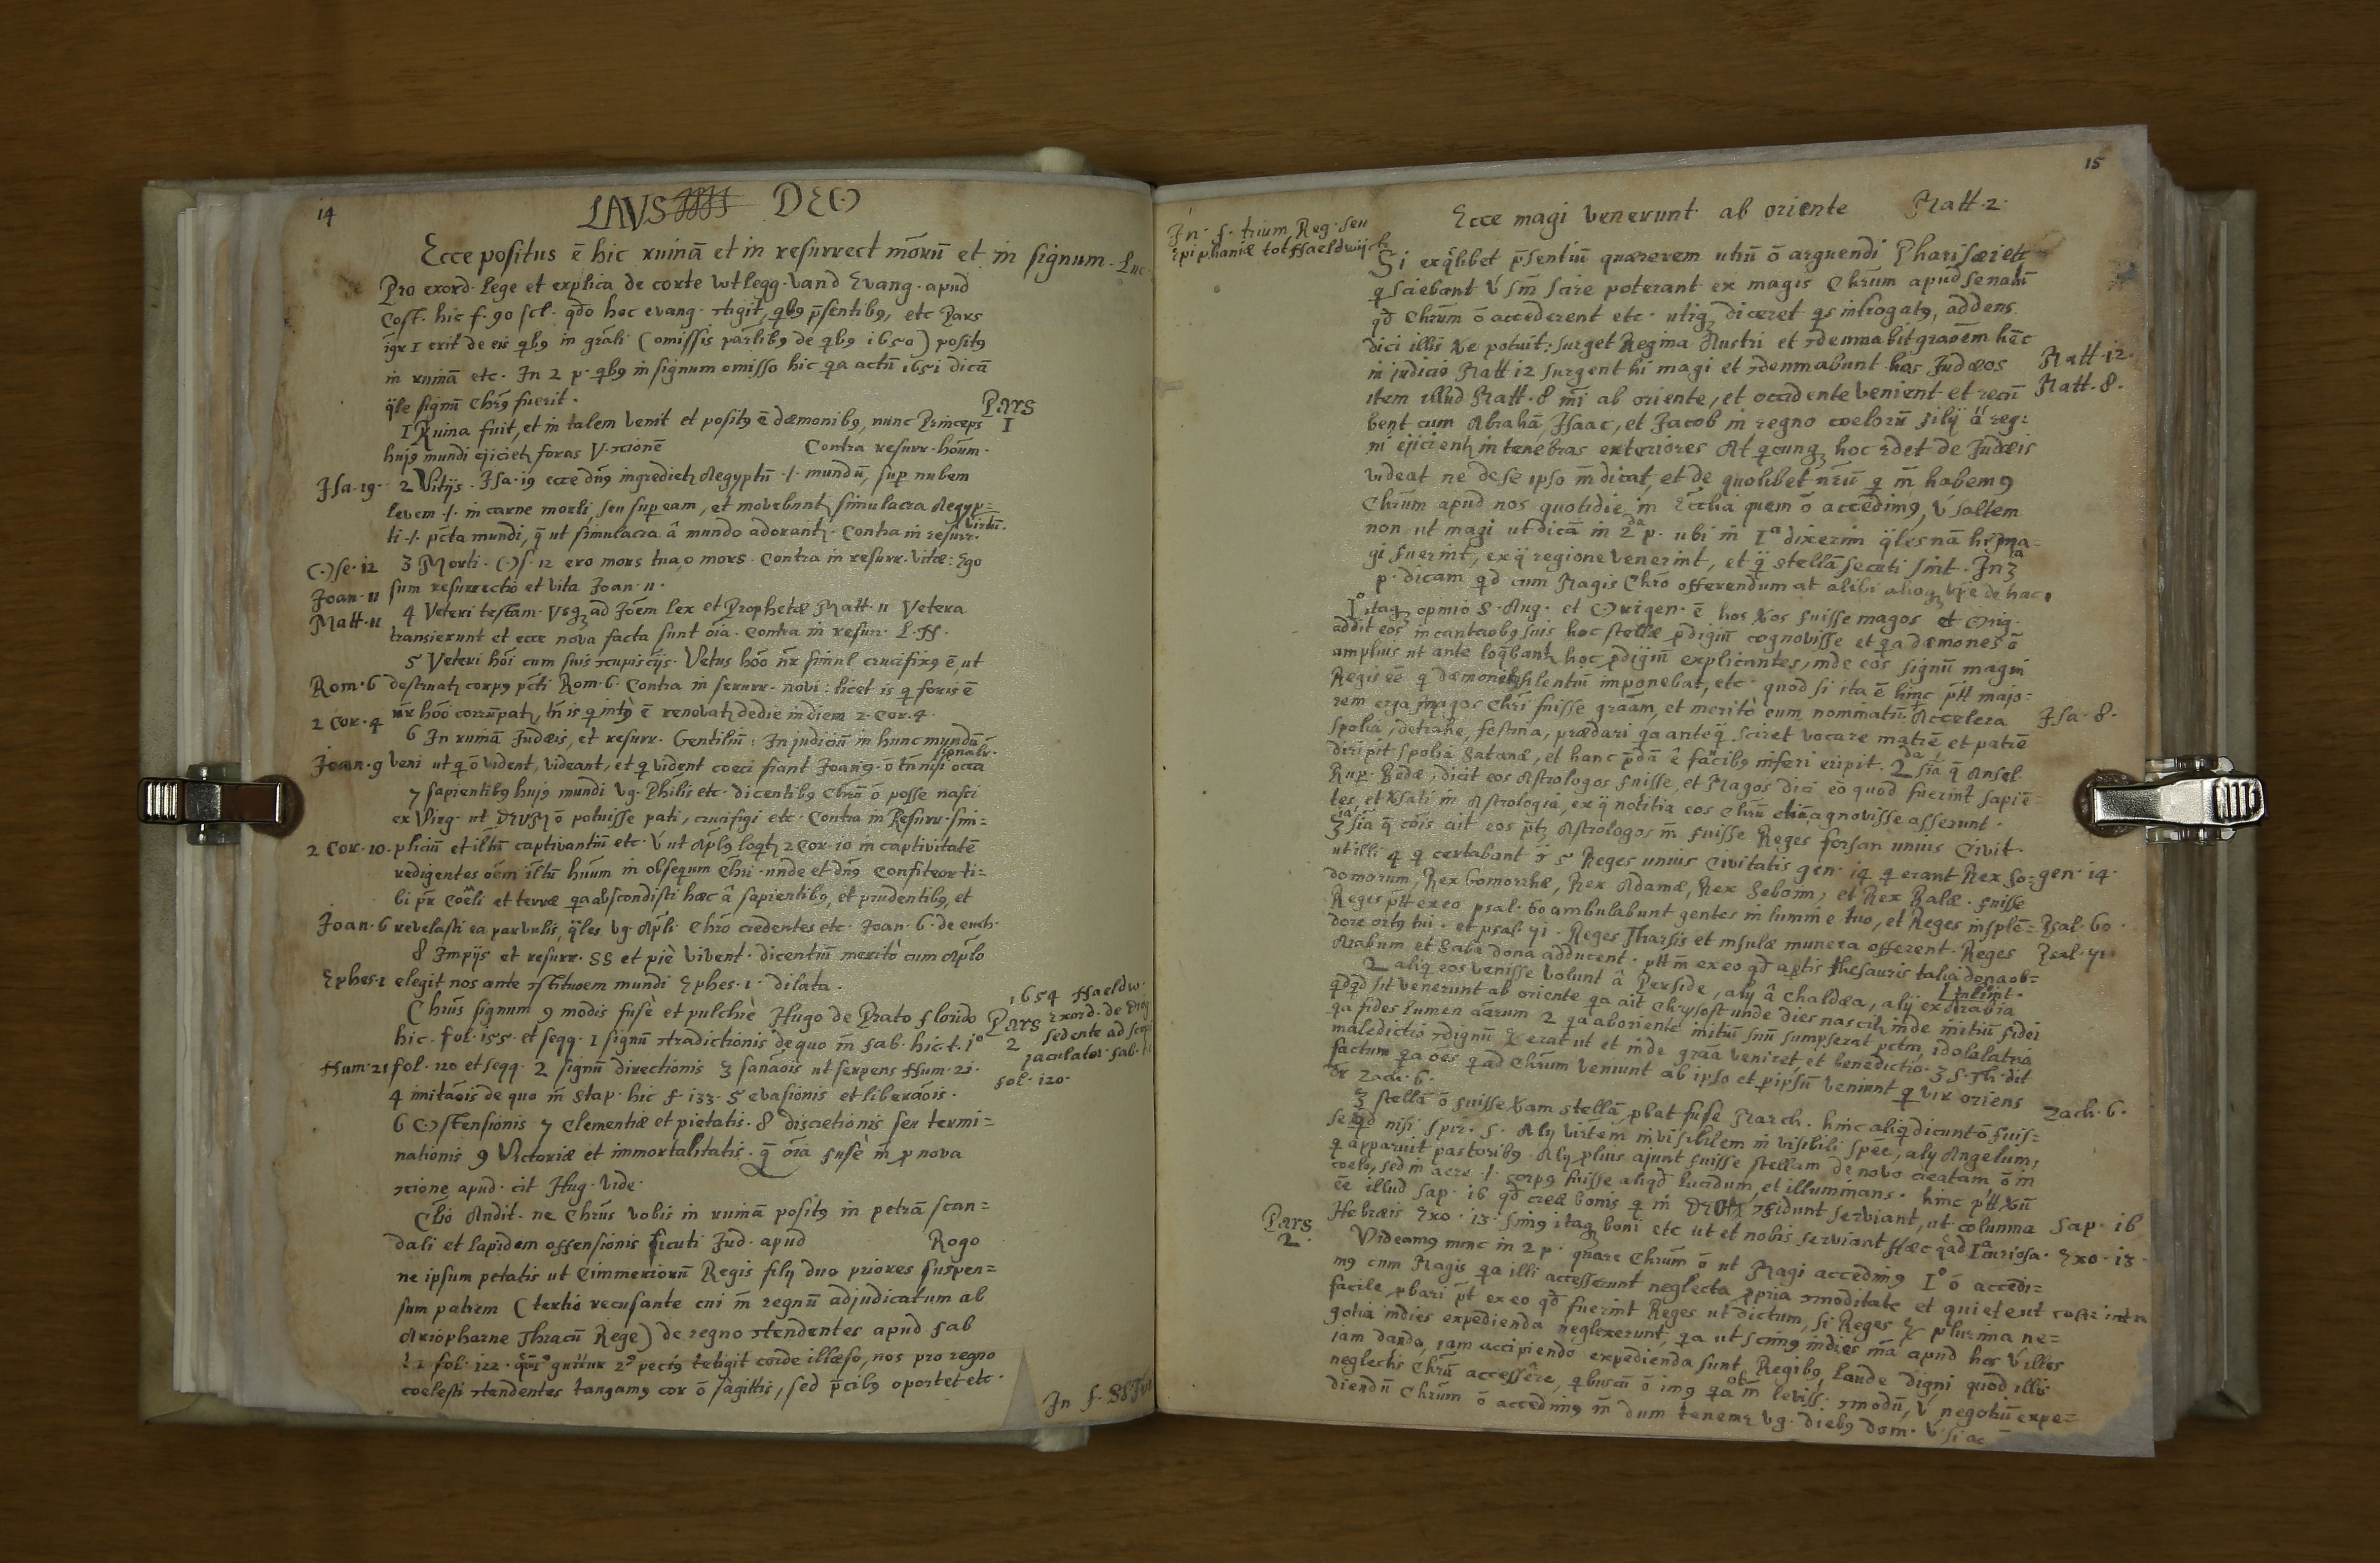 14
LAVS DEO
Ecce positus ē hic ruinā et in resurrect mōrū et in signum. Luc.
Pro exord. lege et explica de corte wtlegg. vand Evang. apud
Cost. hic f. 90 scl. qdo hoc evang. tigit, qbꝯ p̄sentibꝯ, etc Pars
igr 1 erit de eis qbꝯ in grāli (omissis parlibꝯ de qbꝯ 1650) positꝯ
in ruinā etc. In 2 p. qbꝯ in signum omisso hic qa actū 1651 dicā
q̄le signū Chrꝯ fuerit.
Pars
I
1 Ruina fuit, et in talem venit et positꝯ ē dæmonibꝯ, nunc Princeps
hujꝯ mundi ejicietꝫ foras V. Contra resurr. hōum.
Isa. 19. 2 Vitijs. Isa. 19 ecce dn̄s ingredietꝫ Aegyptū ./. mundū, sup nubem
levem ./. in carne morti, seu sup eam, et movebuntꝫ simulacra Aegyp=
ti ./. pc̄ta mundi, q̄ ut simulacra â mundo adorantꝫ. Contra in resurr. Virtū.
Ose. 12 3 Morti. Os. 12 ero mors tua, o mors. Contra in resurr. Vitæ: Ego
Joan. 11 sum resurrectio et vita Joan. 11.
Matt. 11 4 Veteri testam. Vsqꝫ ad Jōem lex et Prophetæ Matt. 11 Vetera
transierunt et ecce nova facta sunt oīa. Contra in resurr. L. N.
5 Veteri hōi cum suis cupiscijs. Vetus hōo nr̄ simul crucifixꝯ ē, ut
Rom. 6 destruatꝫ corpꝯ pc̄ti Rom. 6. Contra in resurr. novi: licet is q foris ē
2 Cor. 4 nr̄ hōo corrūpatꝫ, tn̄ is q intꝯ ē renovatꝫ de die in diem 2. Cor. 4.
6 In ruinā Judæis, et resurr. Gentiliū: In judiciū in hunc mundū
Joan. 9 veni ut q ō vident, videant, et q vident coeci fiant Joan 9. ō tn̄ nisi occa
sionalr.
7 sapientibꝯ hujꝯ mundi vg. Philis etc. dicentibꝯ Chrū ō posse nasci
ex Virg. ut DEVM ō potuisse pati, crucifigi etc. Contra in Resurr. sim=
2 Cor. 10. pliciū et iltū captivantiū etc. V ut Aplꝯ loqtꝫ 2 Cor. 10 in captivitatē
redigentes oēm iltū huum in obsequm Chri. unde et dn̄s Confiteor ti=
bi pr̄ Coēli et terræ qa abscondisti hæc â sapientibꝯ, et prudentibꝯ, et
Joan. 6 revelasti ea parvulis, q̄les vg. Apli Chrō credentes etc. Joan. 6. de euch.
8 Impijs et resurr. SS et piè vivent. dicentiū meritò cum Aplo
Ephes. 1 elegit nos ante stituoem mundi Ephes. 1. dilata.
Chrūs signum 9 modis fusè et pulchrè Hugo de Prato florido
Pars
2
1654 Haeldw.
exord. de
sedente ad
jaculator. fab.
fol. 120.
hic. fol. 155. et seqq. 1 signū tradictionis de quo m̄ fab. hic. t. 1°
Num. 21 fol. 120 et seqq. 2 signū directionis 3 sanāois ut serpens Num. 21.
4 imitāois de quo m̄ Stap. hic f. 133. 5 evasionis et liberāois.
6 Ostensionis 7 Clementiæ et pietatis. 8 discretionis seu termi=
nationis 9 Victoriæ et immortalitatis. q̄ oīa fusè m̄ p nova
cione apud. cit Hug. vide.
Clio Audit. ne Chrūs vobis in ruinā positꝯ in petrā scan=
dali et lapidem offensionis sicuti Jud. apud Rogo
ne ipsum petatis ut Cimmeriorū Regis filij duo priores suspen=
sum patrem (tertio recusante cui m̄ regnū adjudicatum ab
Ariopharne Thracū Rege) de regno tendentes apud fab
fol. 122. 2° pectꝯ tetigit corde illæso, nos pro regno
coelesti tendentes tangamꝯ cor ō sagittis, sed p̄cibꝯ oportet etc.
In f.
15
In. f. trium Reg. seu
Epiphaniæ tot Haeldwijck
Ecce magi venerunt ab oriente Matt. 2.
Si ex q̄libet p̄sentiū quærerem utrū ō arguendi Pharisæi etc
q sciebant V sm̄ scire poterant ex magis Chrūm apud senatū
qd Chrūm ō accederent etc. utiqꝫ diceret qs introgatꝯ, addens
dici illis Ve potuit: surget Regina Austri et demnabit graōem hc̄
in judicio Matt 12 surgent hi magi et denmabunt hos Judæos Matt. 12.
item illud Matt. 8 m̄i ab oriente, et occidente venient et recū Matt. 8.
bent cum Abrahā, Isaac, et Jacob in regno coelorū filij â̄ reg:
ni ejicientꝫ in tenebras exteriores At qcunqꝫ hoc det de Judæis
videat ne de se ipso m̄ dicat, et de quolibet nr̄ū q m̄ habemꝯ
Chrūm apud nos quotidie in Ecclia quem ō accedimꝯ, V saltem
non ut magi ut dicā in 2da p. ubi in 1a dixerim q̄les nā hi ma-
gi fuerint, ex q̄ regione venerint, et q̄ stellā secuti sint. In 3ia
p. dicam qd cum Magis Chrō offerendum at alibi alioqꝫ de hac.
1° itaqꝫ opinio S. Aug. et Origen. ē hos Vos fuisse magos et Orig.
addit eos incantaobꝯ suis hoc stellæ pdigiū cognovisse et qa dæmones ō
amplius ut ante loqbantꝫ hoc pdigiū explicantes, inde eos signū magni
Regis eē q dæmonibꝯ silentiū imponebat, etc. quod si ita ē hinc ptt majo-
rem erga magos Chri fuisse graām, et meritò eum nominatū. Accelera Isa. 8.
spolia, detrahe, festina, prædari qa anteq̄ sciret vocare matrē et patrē
diripit spolia Satanæ, et hanc p̄dā ê faucibꝯ inferi eripit. 2da sīa q̄ Ansel
Rup. Bedæ, dicit eos Astrologos fuisse, et Magos dici eò quod fuerint sapiē-
tes, et Vsati in Astrologiâ, ex q̄ notitia eos Chrū agnovisse asserunt.
3ia sīa q̄ cōis ait eos ptꝫ Astrologos m̄ fuisse Reges forsan unius Civit.
ut illi 4 q certabant 5 Reges unius Civitatis gen. 14 q erant Rex So= gen. 14.
domorum, Rex Gomorrhæ, Rex Adamæ, Rex Seboim, et Rex Balæ. fuisse
Reges ptt ex eo psal. 60 ambulabunt gentes in lumine tuo, et Reges in splē= Psal. 60.
dore ortꝯ tui. et psal. 71. Reges Tharsis et insulæ munera offerent. Reges Psal. 71.
Arabum et Saba dona adducent. ptt m̄ ex eo qd aptis thesauris talia dona ob=
tulint.
2 aliq eos venisse volunt â Perside, alij â Chaldæa, alij ex Arabia
qdqd sit venerunt ab oriente qa ait Chrysost unde dies nascitꝫ inde initiū fidei
qa fides lumen aārum 2 qa ab oriente initiū suū sumpserat pctm, idolalatria
maledictio dignū erat ut et inde graā veniret, et benedictio. 3 S. Th. dit
factum qa oēs q ad Chrūm veniunt ab ipso et p ipsū veniunt q vir oriens
dr Zach. 6. Zach. 6.
3 stellā ō fuisse Vam stellā pbat fusè March. hinc aliq dicunt ō fuis=
se qd nisi spir. S. Alij Virtem invisibilem in visibili spēe, alij Angelum,
q apparuit pastoribꝯ. Alij plius ajunt fuisse stellam de novo creatam ō in
coelo, sed in aere ./. corpꝯ fuisse aliqd lucidum, et illuminans. hinc ptt Vū
eē illud Sap. 16 qd creæ bonis q in DEVM fidunt serviant, ut columna Sap. 16
Hebræis Exo. 13. simꝯ itaqꝫ boni etc ut et nobis serviant Hæc q̄ ad 1a curiosa. Exo. 13.
Pars
2.
Videamꝯ nunc in 2 p. quare Chrūm ō ut Magi accedimꝯ 1° ō accedi=
mꝯ cum Magis qa illi accesserunt neglecta ppria moditate et quiete ut Coste
facile pbari pt̄ ex eo qd fuerint Reges ut dictum, si Reges plurima ne=
gotia indies expedienda neglexerunt, qa ut scimꝯ indies m̄a apud hos Villes
iam dando, iam accipiendo expedienda sunt Regibꝯ, laude digni quòd illis
neglectis Chrū accessêre, q buscū ō imꝯ qa m̄ ob leviss. modū, V negotiū expe=
diendū Chrūm ō accedimꝯ m̄ dum tenemꝯ vg. diebꝯ dom. V si ac